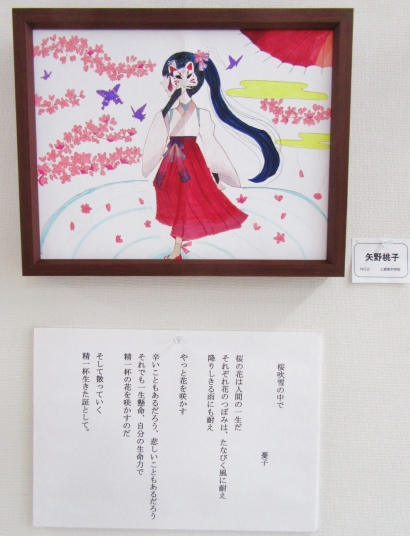 矢野桃子
桜吹雪の中で
憂子
桜の花は人間の一生だ
それぞれ花のつぼみは、たなびく風に耐え
降りしきる雨にも耐え
やっと花を咲かす
辛いこともあるだろう、悲しいこともあるだろう
それでも一生懸命、自分の生命力で
精一杯の花を咲かすのだ
そして散っていく
精一杯生きた証として。